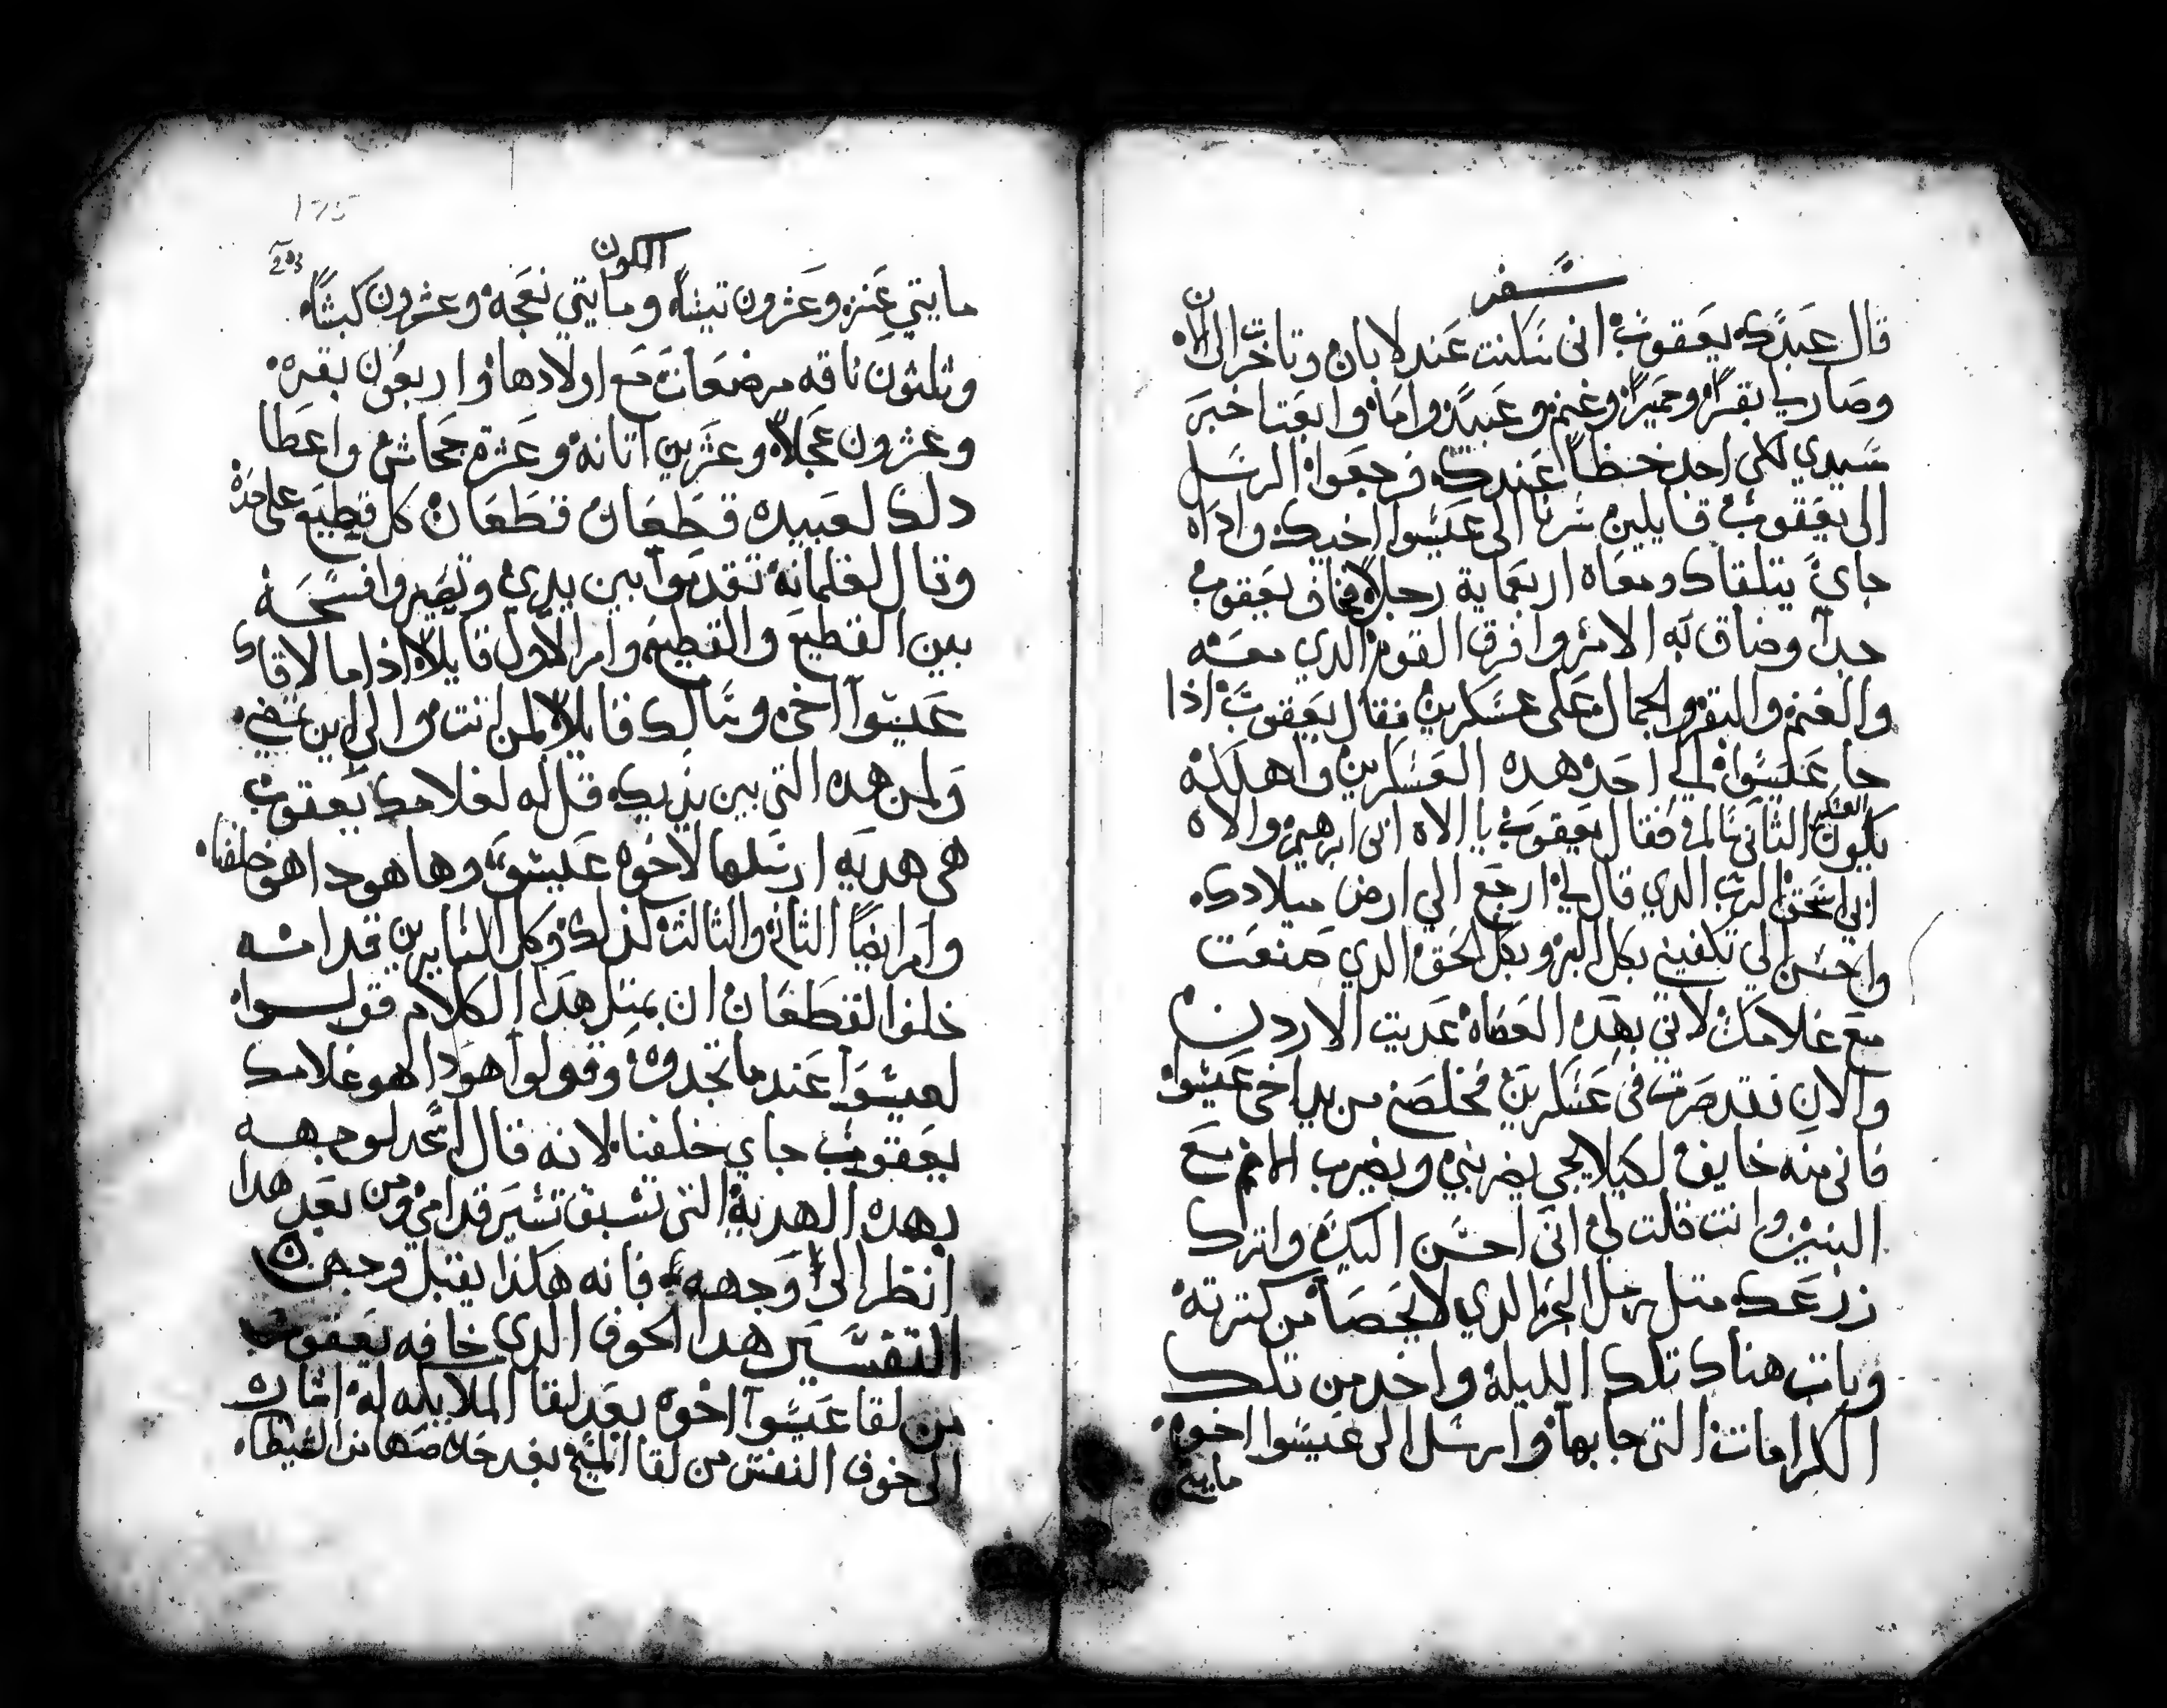 سفر
قال عبدك يعقوب اني سكنت عند لابان وتاخرت الى الان
وصار لي بقرا وحميرا وغنم وعبيد واما وابعتا خبر
سيدي لكي اجد حظا عندك فرجعوا الرسل
الى يعقوب قايلين سرنا الى عيسوا اخيك واداه
جاي يتلقاك ومعاه اربعماية رجلا فخاف يعقوب
جدا وضاق به الامر وافرق القوم الدي معه
والغنم والبقر والجمال على عسكرين فقال يعقوب اذا
جا عيسوا الى احد هده العسكرين واهلكه
يكون العسكر الثاني سالم فقال يعقوب يا الاه ابي ابرهيم والاه
ابي اسحق الرب الدي قال لي ارجع الي ارض ميلادك
واحسن الي تكفيني بكل البر وبكل الحق الدي صنعت
مع غلامك لاني بهده العصاه عديت الاردن
والان فقد صرت في عسكرين فخلصني من يد اخي عيسوا
فاني منه خايف لكيلا يجي يضربني ويضرب الام مع
البنين وانت قلت لي اني احسن اليك واترك
زرعك متل رمل البحر الدي لا يحصا من كترته
وبات هناك تلك الليلة واخد من تلك
الكرامات التي جابها وارسل الى عيسوا اخوه
مايتي
175
203
الكون
مايتي عنز وعشرون تيسا ومايتي نعجه وعشرون كبشا
وثلثون ناقه مرضعات مع اولادها واربعون بقره
وعشرون عجلا وعشرين اتانه وعشرة جحاش واعطا
دلك لعبيده قطعان قطعان كل قطيع على حدة
وقال لغلمانه تقدموا بين يدي وتصير وافسحة
بين القطيع والقطيع وامر الاول قايلا اذا ما لاقاك
عيسوا اخي وسالك قايلا لمن انت والى اين تمضي
ولمن هده التي بين يديك قل له لغلامك يعقوب
هي هديه ارسلها لاخوه عيسوا وها هودا هو خلفنا
وامر ايضا الثاني والثالث كذلك وكل السايرين قدامه
خلفوا القطعان ان بمتل هدا الكلام قولوا
لعيسوا عند ما تجدوه وقولوا هودا هو غلامك
يعقوب جاي خلفنا لانه قال اسجد لوجهه
بهده الهدية التي تسبق تسير قدامي ومن بعد هدا
انظر الى وجهه فانه هكذا يقبل وجهي
التفسير هدا الخوف الدي خافه يعقوب
من لقا عيسوا اخوه بعد لقا الملايكه له اشاره
الى خوف النفس من لقا المسيح بعد خلاصها من الشيطان